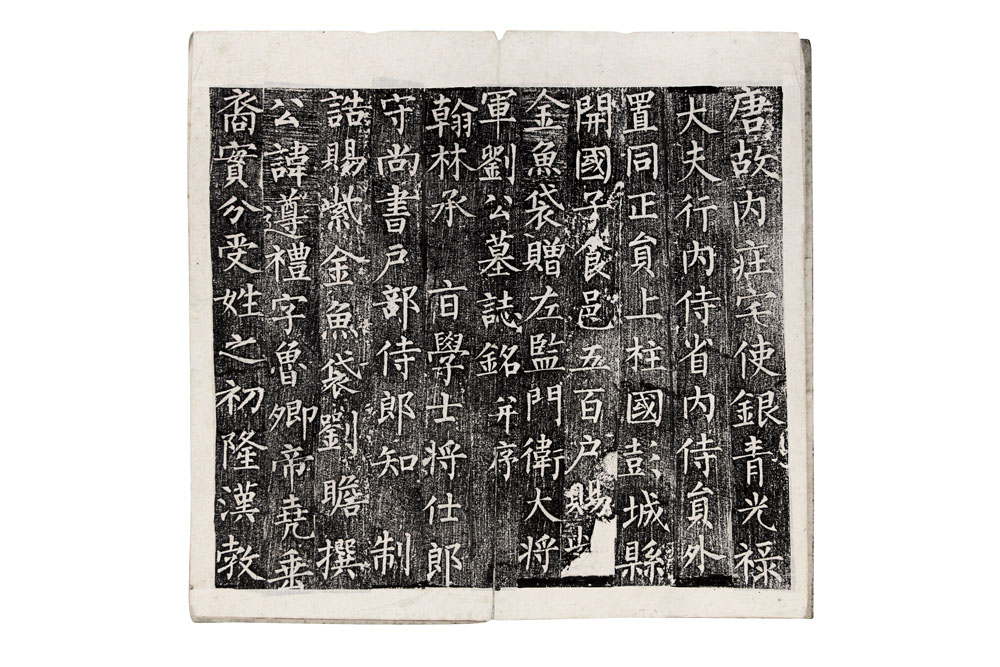 唐故内莊宅使銀青光禄
大夫行内侍省内侍貟外
置同正貟上柱國彭城縣
開國子食邑五百户賜紫
金魚袋贈左監門衛大将
軍劉公墓誌銘并序
翰林承 㫖學士将仕郎
守尚書户部侍郎知 制
誥賜紫金魚袋劉瞻撰
公諱遵禮字魯卿帝堯垂
裔實分受姓之初隆漢敦